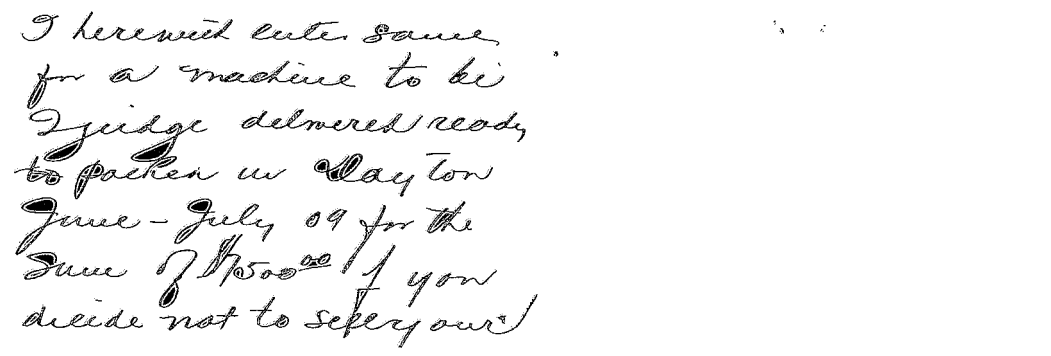 I herewith enter same
for a machine to be
I judge delivered ready
to packed in Dayton
June - July 09 for the
Sum of $7,500.00 If you
decide not to sell your